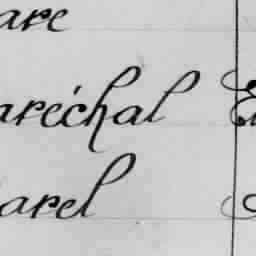 are
aréchal
arel